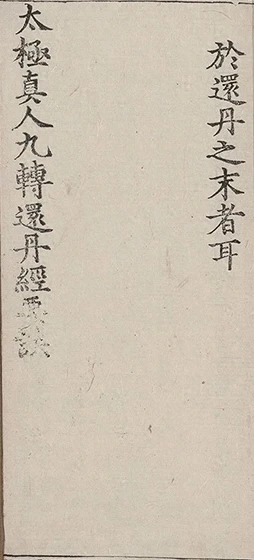 於還丹之末者耳
太極真人九轉還丹經要訣